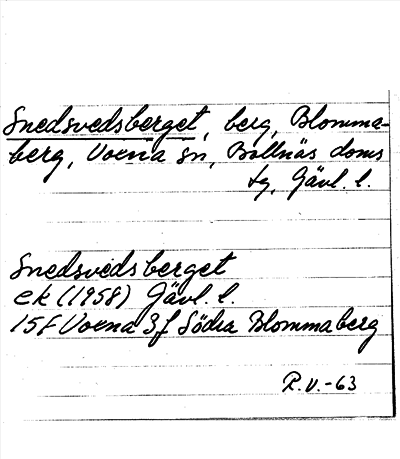 Snedsvedsberget, berg, Blomma-
berg, Voxna sn, Bollnäs doms
tg, Gävl. l.
Snedsvedsberget
ek (1958) Gävl. l.
15F Voxna 3f Södra Blommaberg
R.V.-63